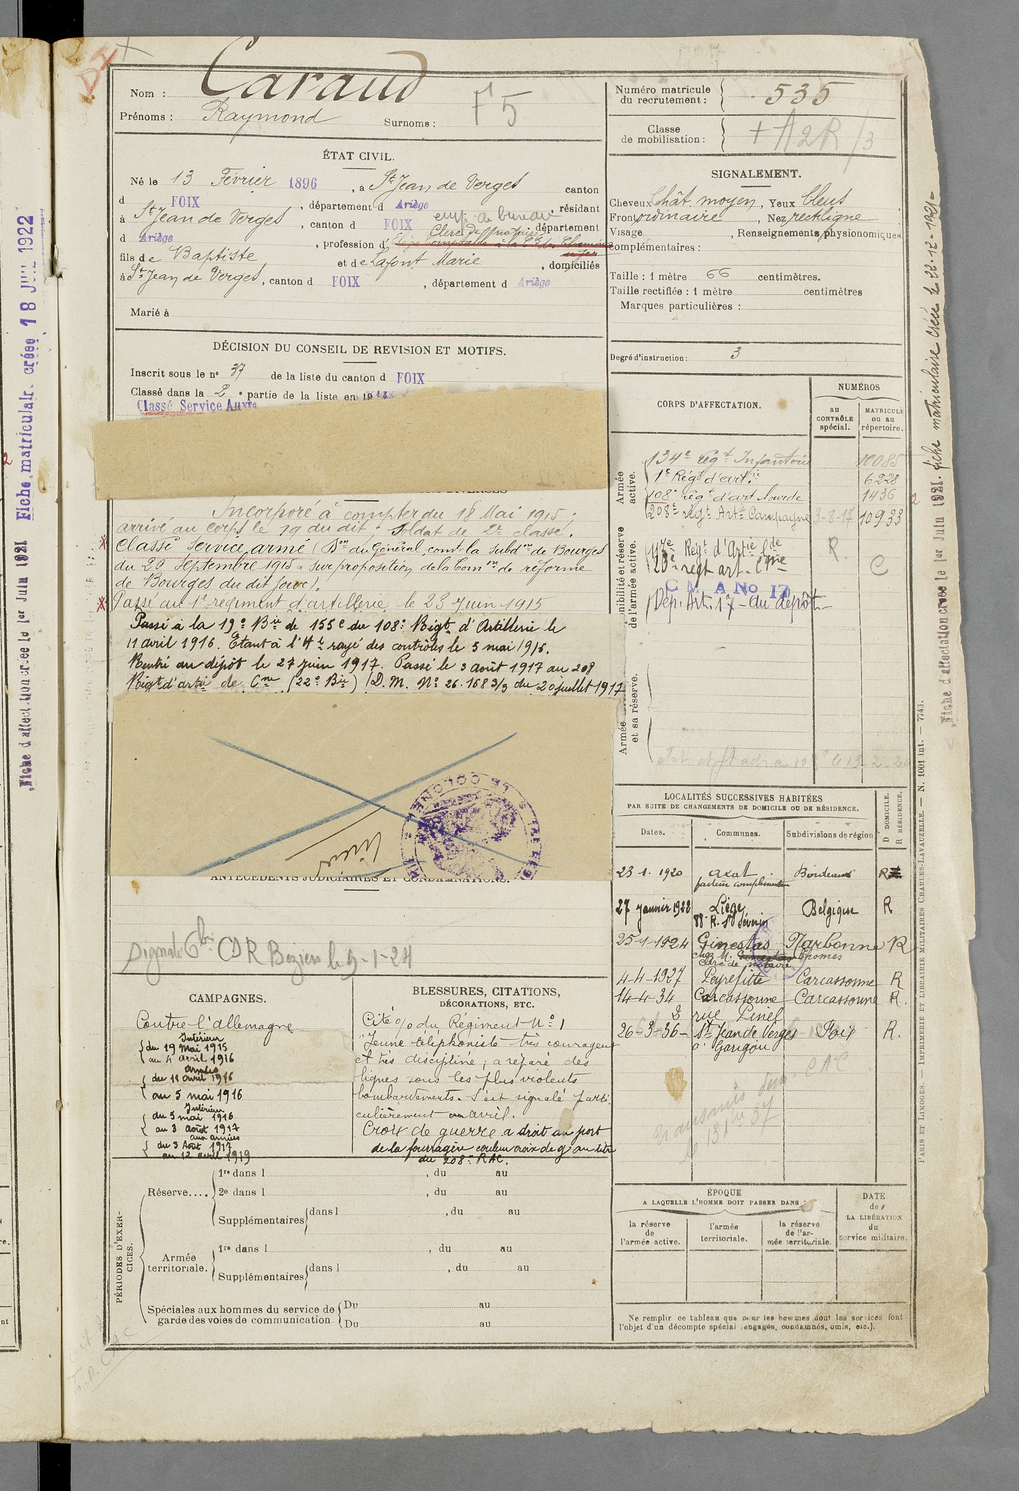 Nom : Caraud
Prénoms : Raymond Surnoms : F 5
Numéro matricule du recrutement : 535
Classe de mobilisation :
ÉTAT CIVIL.
Né le 13 Février 1896, à St Jean de Verges canton
d FOIX, département d Ariège, résidant
à St Jean de Verges, canton d FOIX département
emp. de bureau
d Ariège, profession d Clerc de notaire
fils de Baptiste et de Lafont Marie, domiciliés
à St Jean de Verges, canton d FOIX, département d Ariège
Marié à
SIGNALEMENT.
Cheveux chât. moyen, Yeux bleus
Front ordinaire, Nez rectiligne
Visage , Renseignements physionomiques
complémentaires :
Taille : 1 mètre 66 centimètres.
Taille rectifiée : 1 mètre centimètres
Marques particulières :
Degré d'instruction : 3
DÉCISION DU CONSEIL DE REVISION ET MOTIFS.
Inscrit sous le no 37 de la liste du canton d FOIX
Classé dans la 2e partie de la liste en 191
Classé Service Auxre
Incorporé à compter du 18 Mai 1915.
arrivé au corps le 19 du dit. Soldat de 2e classe.
Classé service armé (Don du Général comt la Subdon de Bourges
du 20 Septembre 1915 - sur proposition de la comon de réforme
de Bourges du dit jour).
Passé au 1er régiment d'artillerie, le 23 Juin 1915
Passé à la 19e Bie de 155 c du 108e Régt d'Artillerie le
11 avril 1916. Etant à l'Hal rayé des contrôles le 5 mai 1916.
Rentré au dépôt le 27 juin 1917. Passé le 3 août 1917 au 208
Régt d'artie de Cne (22e Bie) (D.M. No 26.168 3/3 du 20 juillet 1917
CORPS D'AFFECTATION.
NUMÉROS
AU CONTRÔLE spécial.
MATRICULE ou au répertoire.
Armée active.
134e Régt Infanterie 10085
1er Régt d'artie 6228
108e regt d'art lourde 1436
208e Régt Artie Campagne 3-8-17 10933
Disponibilité et réserve de l'armée active.
117e Régt d'Artie lde R
23e regt art. cgne C
C M A No 17
Dép. Art. 17 - au dépôt
Armée et sa réserve.
LE COLONEL
ANTÉCÉDENTS JUDICIAIRES ET CONDAMNATIONS.
Signalé 6 bis CDR Beziers le 9-1-24
LOCALITÉS SUCCESSIVES HABITÉES
PAR SUITE DE CHANGEMENTS DE DOMICILE OU DE RÉSIDENCE.
Dates. Communes. Subdivisions de région D DOMICILE. R RÉSIDENCE.
23-1-1920 Axat Bordeaux R
facteur complémentaire
27 janvier 1922 Liège Belgique R
88 R. St Séverin
25-1-1924 Ginestas Narbonne R
clerc de notaire
4-4-1927 Peyrefitte Carcassonne R
14-4-34 Carcassonne Carcassonne R.
3 rue Pinel
26-3-36 St Jean de Verges Foix R
à Gargou
CAMPAGNES.
Contre l'allemagne
Intérieur
du 19 mai 1915
au 11 avril 1916
armées
du 11 avril 1916
au 5 mai 1916
Intérieur
du 5 mai 1916
au 3 août 1917
aux armées
du 3 Août 1917
au 12 avril 1919
BLESSURES, CITATIONS, DÉCORATIONS, ETC.
Cité o/o du Régiment No 1
"Jeune téléphoniste très courageux
et très discipliné ; a réparé des
lignes sous les plus violents
bombardements. S'est signalé parti
culièrement en avril.
Croix de guerre a droit au port
de la fourragère couleur croix de g. au titre
du 208e RAC.
PÉRIODES D'EXERCICES.
Réserve.... 1re dans l , du au
2e dans l , du au
Supplémentaires dans l , du au
Armée territoriale. 1re dans l , du au
Supplémentaires dans l , du au
Spéciales aux hommes du service de garde des voies de communication. Du au
Du au
ÉPOQUE
A LAQUELLE L'HOMME DOIT PASSER DANS :
la réserve de l'armée active. l'armée territoriale. la réserve de l'armée territoriale.
DATE de LA LIBÉRATION du service militaire.
Ne remplir ce tableau que pour les hommes dont les services font
l'objet d'un décompte spécial (engagés, condamnés, omis, etc.).
Fiche d'affectation créée le 1er Juin 1921 Fiche matriculaire créée 18 JUIL 1922
Fiche d'affectation créée le 1er Juin 1921. fiche matriculaire créée le 22-12-1921
PARIS ET LIMOGES. — IMPRIMERIE ET LIBRAIRIE MILITAIRES CHARLES-LAVAUZELLE. — N. 1001 int. — 7743.